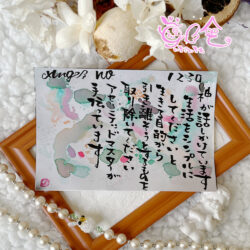 Angel no 1230
神が話しかけています
生活をシンプルに
してくださいと
生きる目的から
引き離そうとするものを
取り除いてください
アセンデッドマスターが
ます